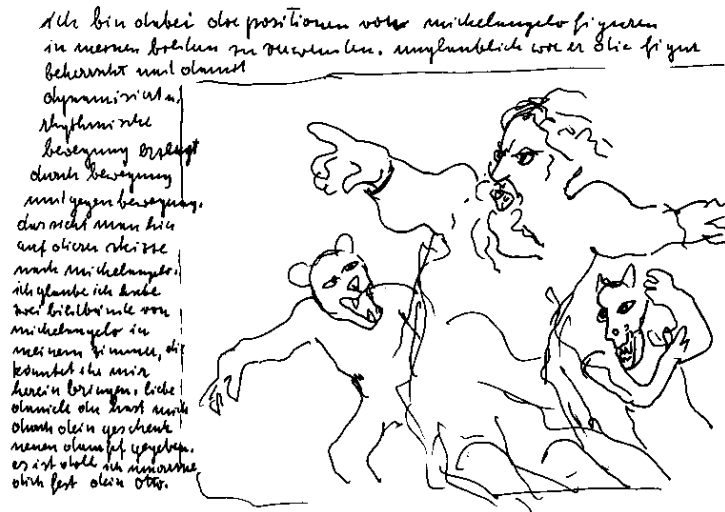 ich bin dabei die positionen von michelangelo figuren
in meinen bildern zu verwenden. unglaublich wie er die figur
beherrscht und damit
dynamisiert u.
rhythmische
bewegung erzeugt
durch bewegung
und gegenbewegung.
das sieht man hier
auf dieser skizze
nach michelangelo.
ich glaube ich habe
zwei bildbände von
michelangelo in
meinem zimmer, die
könntet ihr mir
herein bringen. liebe
du hast mich
durch dein geschenk
neuen dampf gegeben.
es ist toll ich umarme
dich fest dein otto.